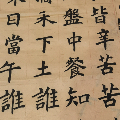 皆辛苦苦
盤中餐知
禾下土誰
日當午誰